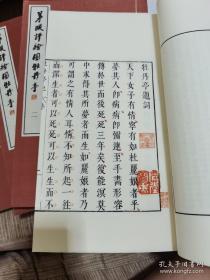 牡丹亭題詞
天下女子有情寧有如杜麗娘者乎
夢其人即病病即彌連至手畫形容
傳於世而後死死三年矣復能溟莫
中求得其所夢者而生如麗娘者乃
可謂之有情人耳情不知所起一往
而深生者可以死死可以生生而不
評繪圖牡丹亭
二